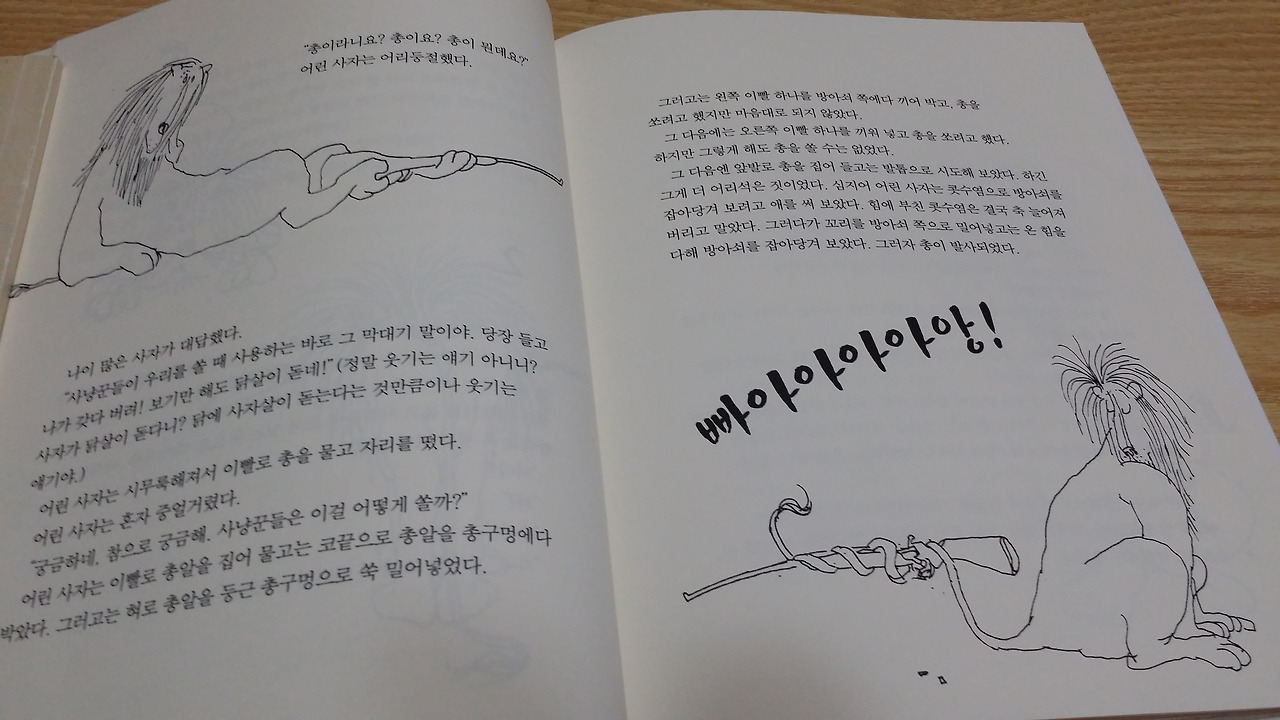 "총이라니요? 총이요? 총이 뭔데요?"
어린 사자는 어리둥절했다.
나이 많은 사자가 대답했다.
"사냥꾼들이 우리를 쏠 때 사용하는 바로 그 막대기 말이야. 당장 들고
나가 갖다 버려! 보기만 해도 닭살이 돋네!" (정말 웃기는 얘기 아니니?
사자가 닭살이 돋다니? 닭에 사자살이 돋는다는 것만큼이나 웃기는
얘기야.)
어린 사자는 시무룩해져서 이빨로 총을 물고 자리를 떴다.
어린 사자는 혼자 중얼거렸다.
"궁금하네, 참으로 궁금해. 사냥꾼들은 이걸 어떻게 쏠까?"
어린 사자는 이빨로 총알을 집어 물고는 코끝으로 총알을 총구멍에다
박았다. 그러고는 혀로 총알을 둥근 총구멍으로 쑥 밀어넣었다.
그러고는 왼쪽 이빨 하나를 방아쇠 쪽에다 끼어 박고, 총을
쏘려고 했지만 마음대로 되지 않았다.
그 다음에는 오른쪽 이빨 하나를 끼워 넣고 총을 쏘려고 했다.
하지만 그렇게 해도 총을 쏠 수는 없었다.
그 다음엔 앞발로 총을 집어 들고는 발톱으로 시도해 보았다. 하긴
그게 더 어리석은 짓이었다. 심지어 어린 사자는 콧수염으로 방아쇠를
잡아당겨 보려고 애를 써 보았다. 힘에 부친 콧수염은 결국 축 늘어져
버리고 말았다. 그러다가 꼬리를 방아쇠 쪽으로 밀어넣고는 온 힘을
다해 방아쇠를 잡아당겨 보았다. 그러자 총이 발사되었다.
빠아아아아앙!